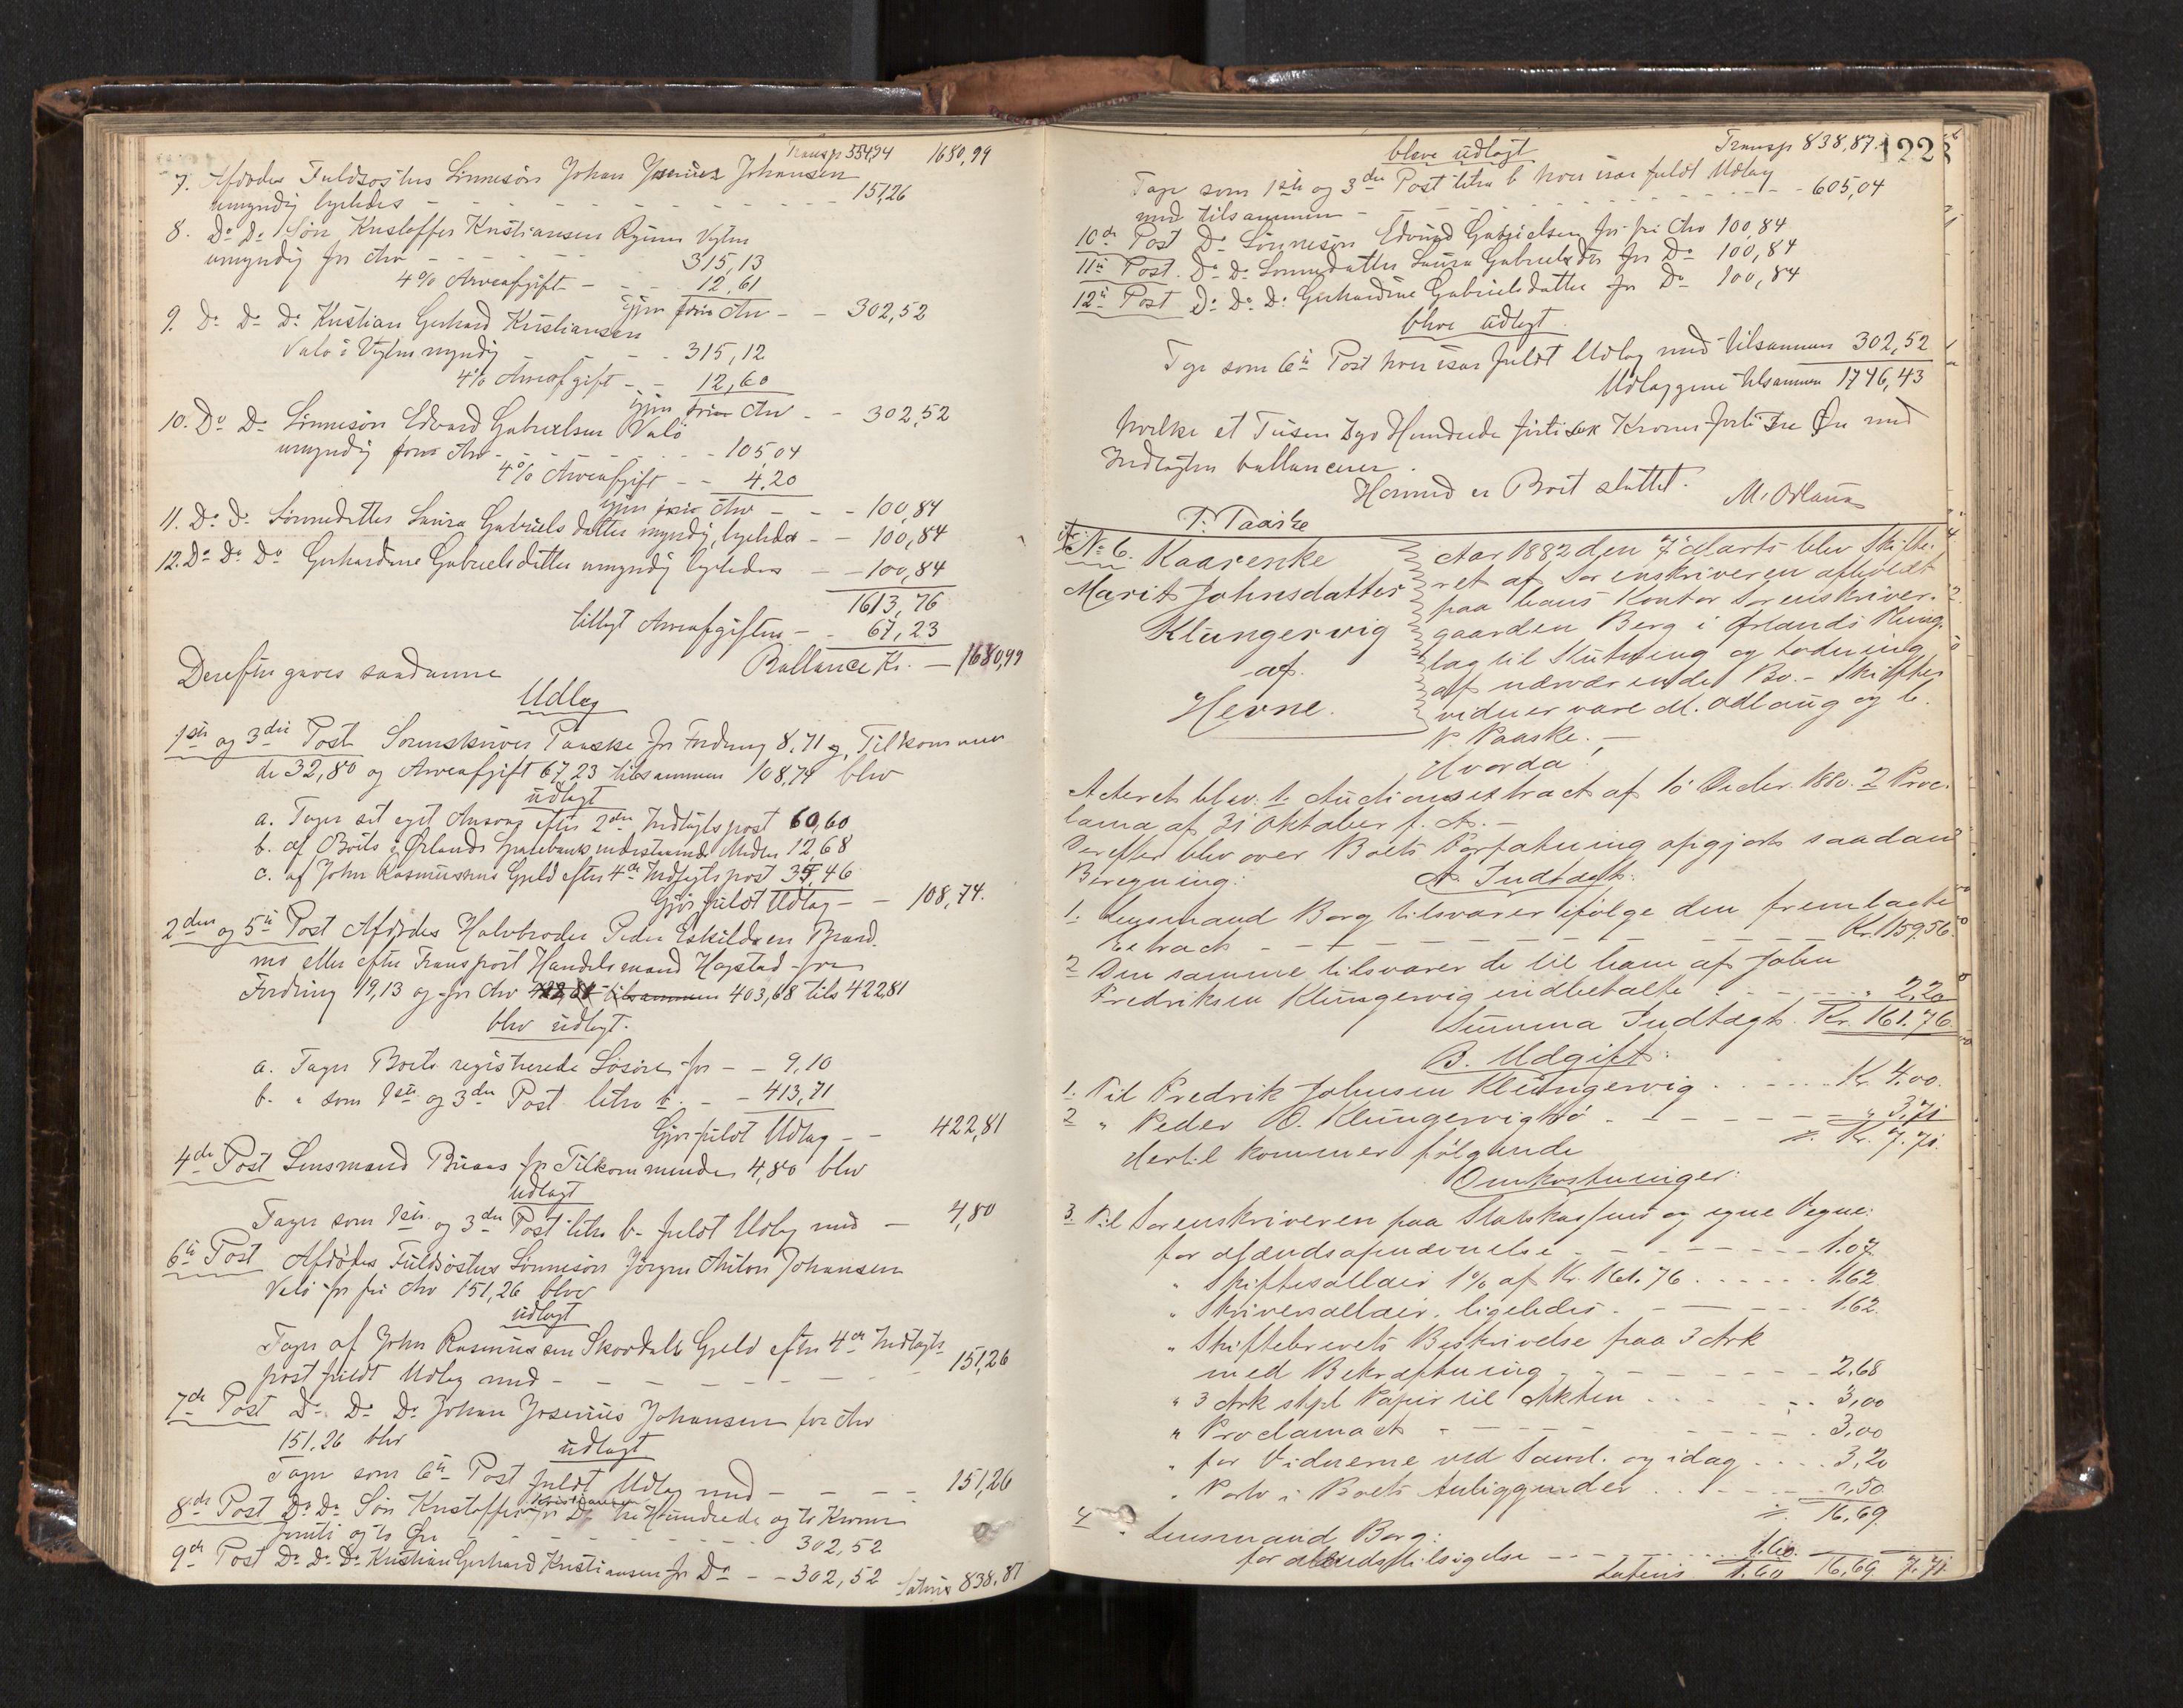 Transp 554,94 1680,99
7. Afdødes Fuldsøsters Sønnesøn Johan Josenius Johansen
umyndig ligeledes - - - 151,26
8. Do Do Søn Kristoffer Kristiansen
umyndig for Arv - - - 315,13
4% Arveafgift - - 12,61
igjen fri Arv - - 302,52
9. Do Do Do Kristian Gerhard Kristiansen
Valø i myndig - - 315,12
4% Arveafgift - - 12,60
igjen fri Arv - - 302,52
10. Do Do Sønnesøn Edvard Gabrielsen Valø
umyndig for Arv - - - 105,04
4% Arveafgift - - 4,20
igjen fri Arv - - - 100,84
11. Do Do Sønnedatter Laura Gabrielsdatter myndig, ligeledes - - 100,84
12. Do Do Do Gerhardine Gabrielsdatter umyndig ligeledes - - 100,84
1613,76
tillagt Arveafgiften - - 67,23
Ballance Kr. - 1680,99
Derefter gaves saadanne
Udlæg
1ste og 3die Post Sorenskriver Paaske for Fordring 8,71 og Tilkommen
de 32,80 og Arveafgift 67,23 tilsammen 108,74 blev
udlagt
a. Tager sit eget Ansvar efter 2den Indtægtspost 60,60
b. af Boets i Ørlands Sparebank indestaaende Midler 12,68
c. af John Rasmussens Gjeld efter 4de Indtægtspost 35,46
Gjør fuldt Udlæg - - 108,74.
2den og 5te Post Afdødes Halvbroder Peder Eskildsen
eller efter Transport Handelsmand Hogstad for
Fordring 19,13 og for Arv tilsammen 403,68 tils 422,81
blev udlagt.
a. Tager Boets registrerede Løsøre for - - 9,10
b. " som 1ste og 3die Post litra - - 413,71
Gjør fuldt Udlæg - - 422,81
4de Post Lensmand for Tilkommende 4,80 blev
udlagt
Tager som 1ste og 3die Post litra b. fuldt Udlæg med - 4,80
6te Post Afdødes Fuldsøsters Sønnesøn Jørgen Anton Johansen
Valø for fri Arv 151,26 blev
udlagt
Tager af John Rasmussen Skordals Gjeld efter 4de Indtægts-
post fuldt Udlæg med - - - 151,26
7de Post Do Do Do Johan Josenius Johansen for Arv
151,26 blev
udlagt
Tager som 6te Post fuldt Udlæg med - - - 151,26
8de Post Do Do Søn Kristoffer Kristiansen for Do tre Hundrede og to Kroner
femti og to Øre - - - 302,52
9de Post Do Do Do Kristian Gerhard Kristiansen for Do - - 302,52 Lateris 838,87
Transp 838,87. 122
bleve udlagt
Tager som 1ste og 3die Post litra b hver især fuldt Udlæg
med tilsammen - - - 605,04
10de Post Do Sønnesøn Edvard Gabrielsen for fri Arv 100,84
11te Post Do Do Sønnedatter Laura Gabrielsdtr for Do 100,84
12te Post Do Do Do Gerhardine Gabrielsdatter for Do 100,84
bleve udlagt
Tager som 6te Post hver især fuldt Udlæg med tilsammen 302,52
Udlæggene tilsammen 1746,43
hvilke et Tusen Syv Hundrede førti sex Kroner førti tre Øre med
Indtægten ballancerer.
Hermed er Boet sluttet.
P. Paaske M. Odlaug
No 6. Kaarenke
Marit Johnsdatter
Klungervig
af
Hevne.
Aar 1882 den 7de Marts blev Skifte-
ret af Sorenskriveren afholdt
paa hans Kontor Sorenskriver-
gaarden Berg i Ørlands Thing-
lag til Slutning og Lodning
af nærværende Bo. - Skifte-
vidner vare M. Odlaug og
P. Paaske. -
Hvorda
Acteret blev: 1. Auctionsextract af 10 Decbr. 1880. 2 Proc-
lama af 31 Oktober f. A. -
Derefter blev over Boets Forfatning opgjort saadan
Beregning:
A. Indtægt:
1. Lensmand Borg tilsvarer ifølge den fremlagte
Extract - - - Kr. 159,56.
2 Den samme tilsvarer de til ham af John
Fredriksen Klungervig indbetalte - - - " 2,20
Summa Indtægt. Kr. 161,76.
B. Udgift:
1. Til Fredrik Johnsen Klungervig - - - Kr. 4,00.
2 " Peder O. Klungervigbø - - - " 3,71
Kr. 7,71.
Hertil kommer følgende
Omkostninger:
3. Til Sorenskriveren paa Statskassens og egne Vegne:
for Mændsopnævnelse - - - 1.07
" Skiftesallair 1% af Kr. 161.76 - - - 1.62
" Skriversallair ligeledes - - - 1.62.
" Skiftebrevets Beskrivelse paa 3 Ark
med Bekræftning - - - 2,68
" 3 Ark stpl. Papir til Akten - - - 3,00
" Proclamaet - - - 3,00
" for Vidnerne ved Saml. og idag - - - 3,20
" Porto i Boets Anliggender - - - 0,50
16,69.
4 " Lensmand Borg:
for Mændstilsigelse - - - 1.60.
Lateris 1.60 16,69 7,71.